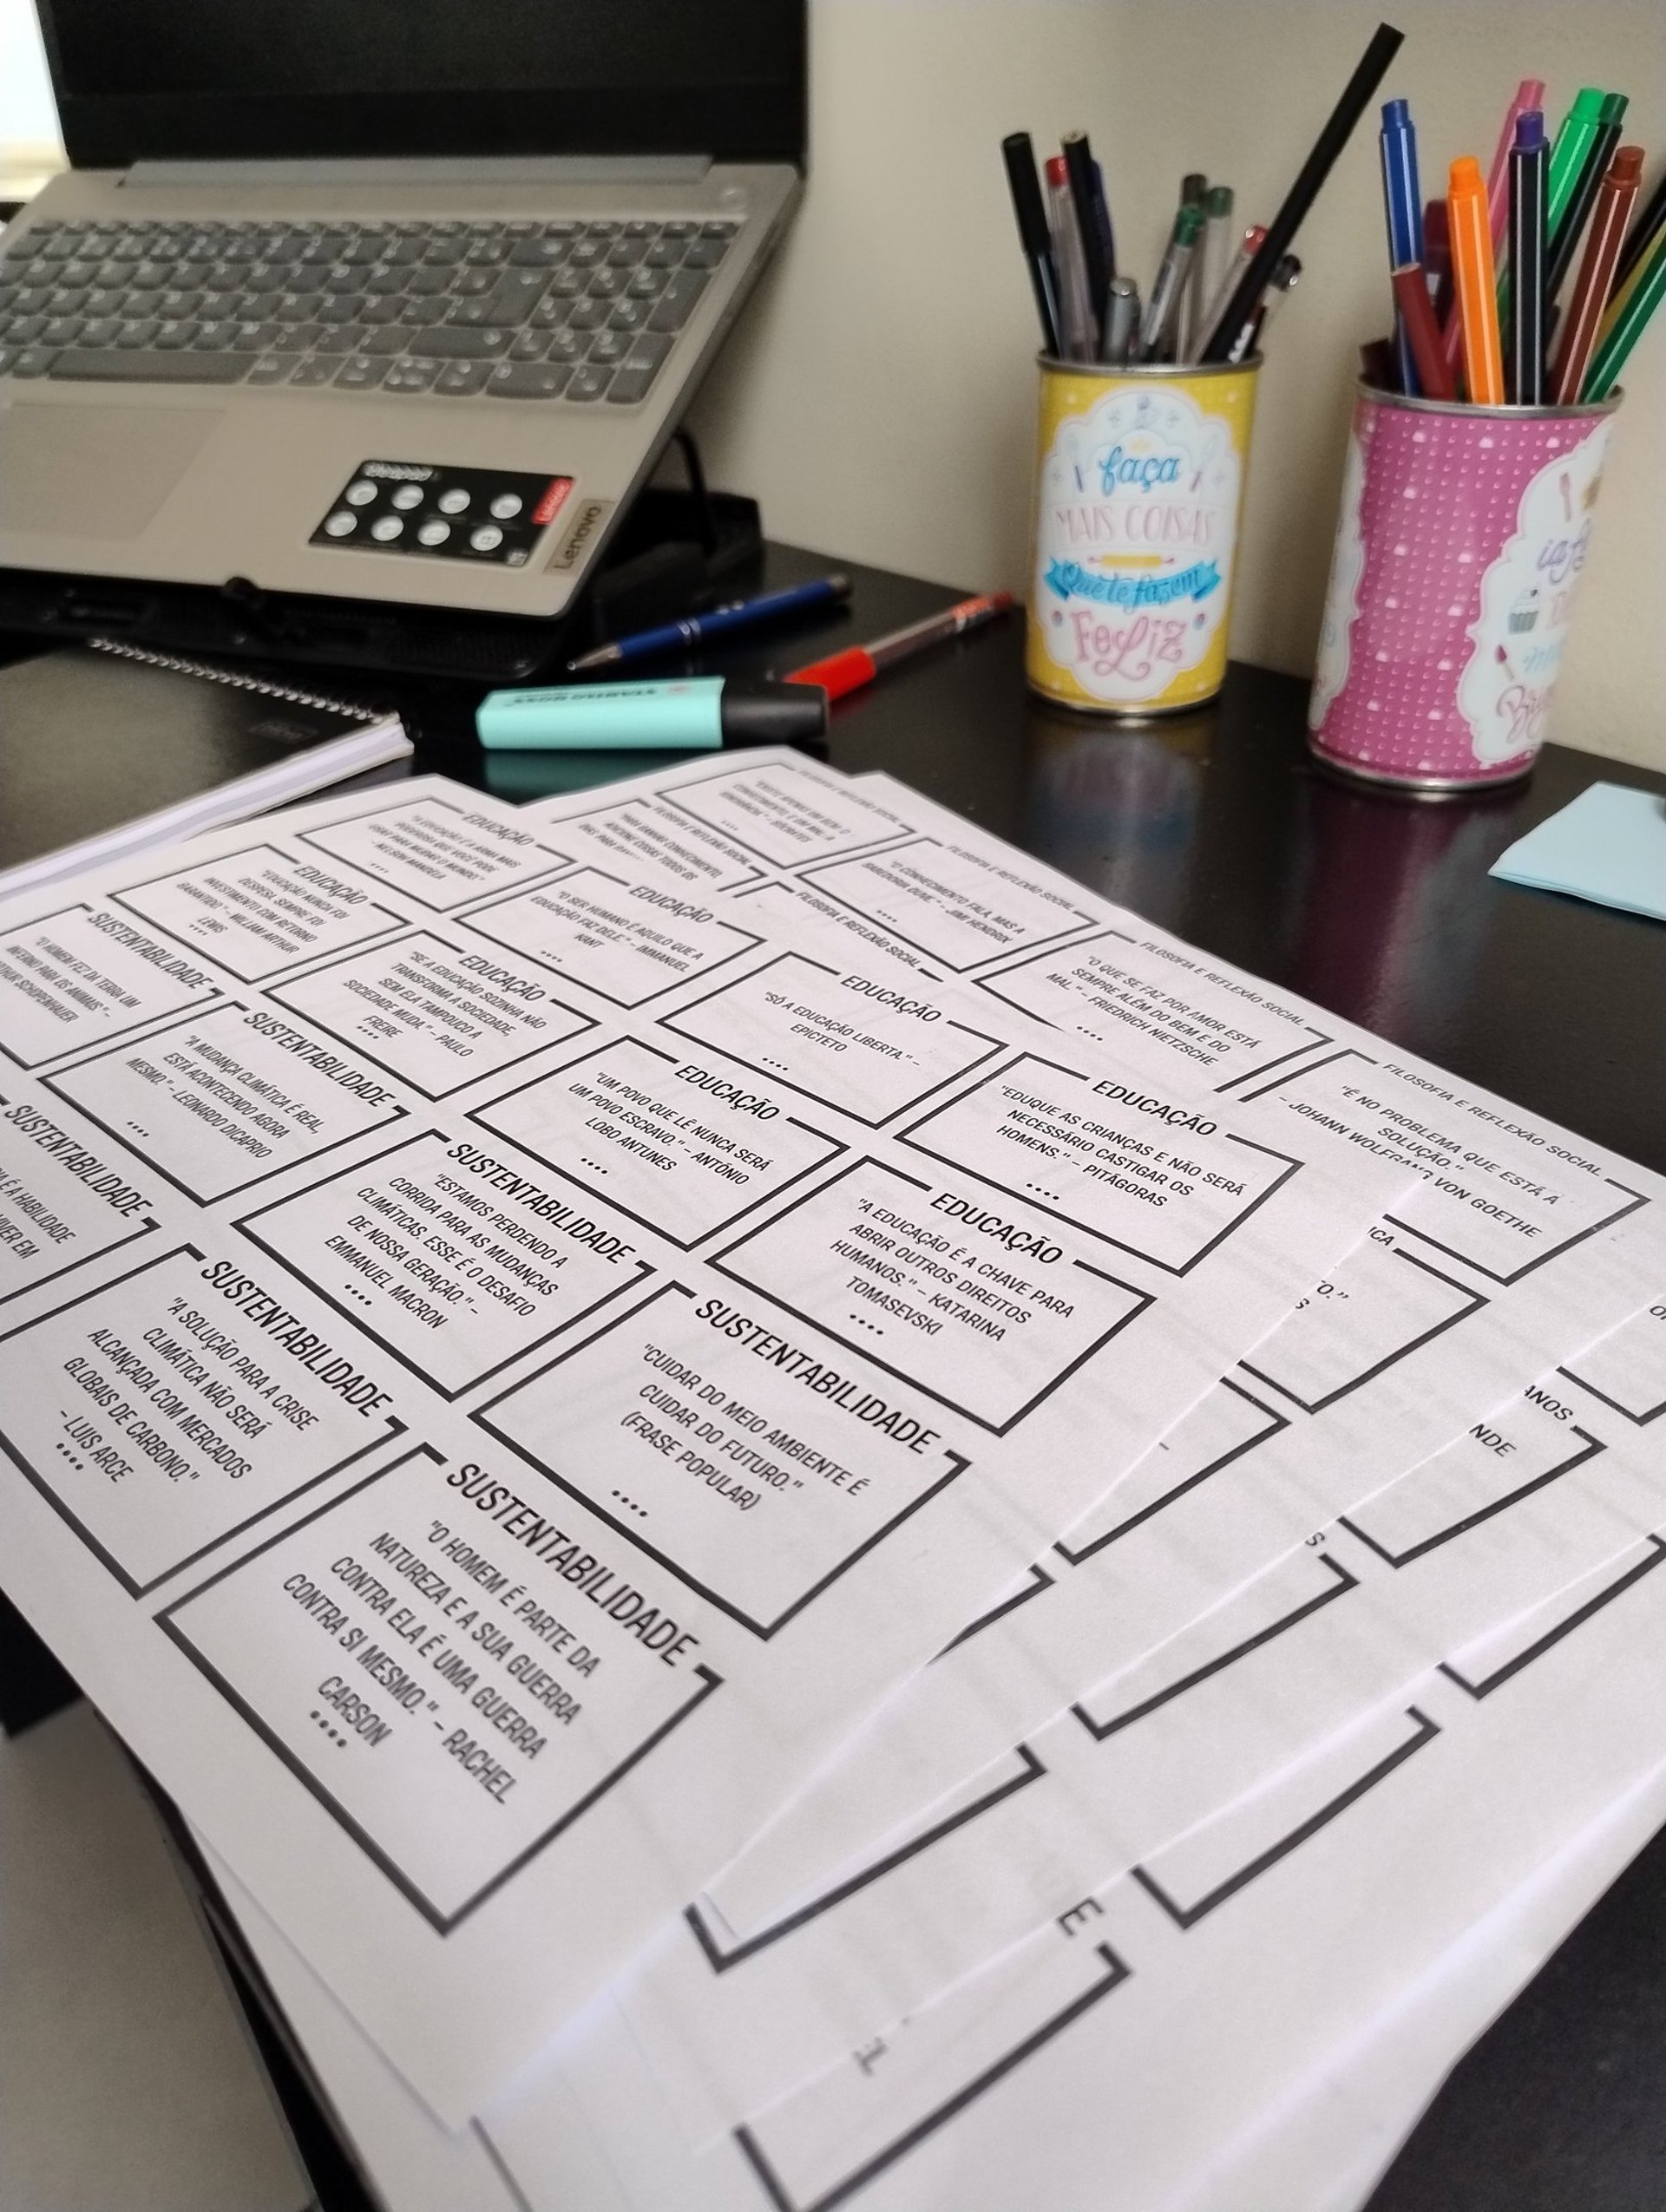 ideapad
Lenovo
Lenovo
faça
MAIS COISAS
Que te fazem
Feliz
STABILO BOSS
EDUCAÇÃO
"A EDUCAÇÃO É A ARMA MAIS
PODEROSA QUE VOCÊ PODE
USAR PARA MUDAR O MUNDO."
– NELSON MANDELA
....
EDUCAÇÃO
"O SER HUMANO É AQUILO QUE A
EDUCAÇÃO FAZ DELE." – IMMANUEL
KANT
....
EDUCAÇÃO
"SÓ A EDUCAÇÃO LIBERTA." –
EPICTETO
....
EDUCAÇÃO
"EDUQUE AS CRIANÇAS E NÃO SERÁ
NECESSÁRIO CASTIGAR OS
HOMENS." – PITÁGORAS
....
EDUCAÇÃO
"EDUCAÇÃO NUNCA FOI
DESPESA. SEMPRE FOI
INVESTIMENTO COM RETORNO
GARANTIDO." – WILLIAM ARTHUR
LEWIS
....
EDUCAÇÃO
"SE A EDUCAÇÃO SOZINHA NÃO
TRANSFORMA A SOCIEDADE,
SEM ELA TAMPOUCO A
SOCIEDADE MUDA." – PAULO
FREIRE
....
EDUCAÇÃO
"UM POVO QUE LÊ NUNCA SERÁ
UM POVO ESCRAVO." – ANTÓNIO
LOBO ANTUNES
....
EDUCAÇÃO
"A EDUCAÇÃO É A CHAVE PARA
ABRIR OUTROS DIREITOS
HUMANOS." – KATARINA
TOMASEVSKI
....
SUSTENTABILIDADE
"O HOMEM FEZ DA TERRA UM
INFERNO PARA OS ANIMAIS." –
ARTHUR SCHOPENHAUER
SUSTENTABILIDADE
"A MUDANÇA CLIMÁTICA É REAL,
ESTÁ ACONTECENDO AGORA
MESMO." – LEONARDO DICAPRIO
....
SUSTENTABILIDADE
"ESTAMOS PERDENDO A
CORRIDA PARA AS MUDANÇAS
CLIMÁTICAS. ESSE É O DESAFIO
DE NOSSA GERAÇÃO." –
EMMANUEL MACRON
....
SUSTENTABILIDADE
"CUIDAR DO MEIO AMBIENTE É
CUIDAR DO FUTURO."
(FRASE POPULAR)
....
SUSTENTABILIDADE
É A HABILIDADE
EM
SUSTENTABILIDADE
"A SOLUÇÃO PARA A CRISE
CLIMÁTICA NÃO SERÁ
ALCANÇADA COM MERCADOS
GLOBAIS DE CARBONO."
– LUIS ARCE
....
SUSTENTABILIDADE
"O HOMEM É PARTE DA
NATUREZA E A SUA GUERRA
CONTRA ELA É UMA GUERRA
CONTRA SI MESMO." – RACHEL
CARSON
....
FILOSOFIA E REFLEXÃO SOCIAL
"EXISTE APENAS UM BEM, O
CONHECIMENTO, E UM MAL, A
IGNORÂNCIA." – SÓCRATES
....
FILOSOFIA E REFLEXÃO SOCIAL
"O CONHECIMENTO FALA, MAS A
SABEDORIA OUVE." – JIMI HENDRIX
....
FILOSOFIA E REFLEXÃO SOCIAL
"O QUE SE FAZ POR AMOR ESTÁ
SEMPRE ALÉM DO BEM E DO
MAL." – FRIEDRICH NIETZSCHE
....
FILOSOFIA E REFLEXÃO SOCIAL
"É NO PROBLEMA QUE ESTÁ A
SOLUÇÃO."
– JOHANN WOLFGANG VON GOETHE
FILOSOFIA E REFLEXÃO SOCIAL
"PARA GANHAR CONHECIMENTO,
ADICIONE COISAS TODOS OS
DIAS. PARA
FILOSOFIA E REFLEXÃO SOCIAL
ICA
O."
S
ANOS
NDE
S
E